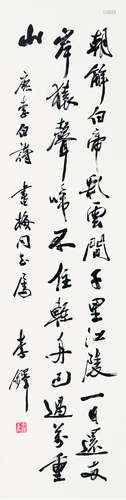 朝辭白帝彩雲間千里江陵一日還兩
岸猿聲啼不住輕舟已過萬重
山
唐李白詩 書梅同志屬
李鐸